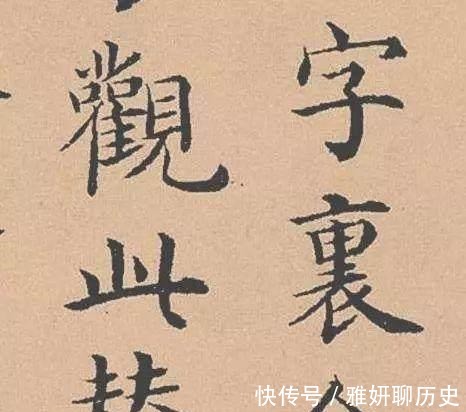 字裏
觀此
快传号/雅妍聊历史